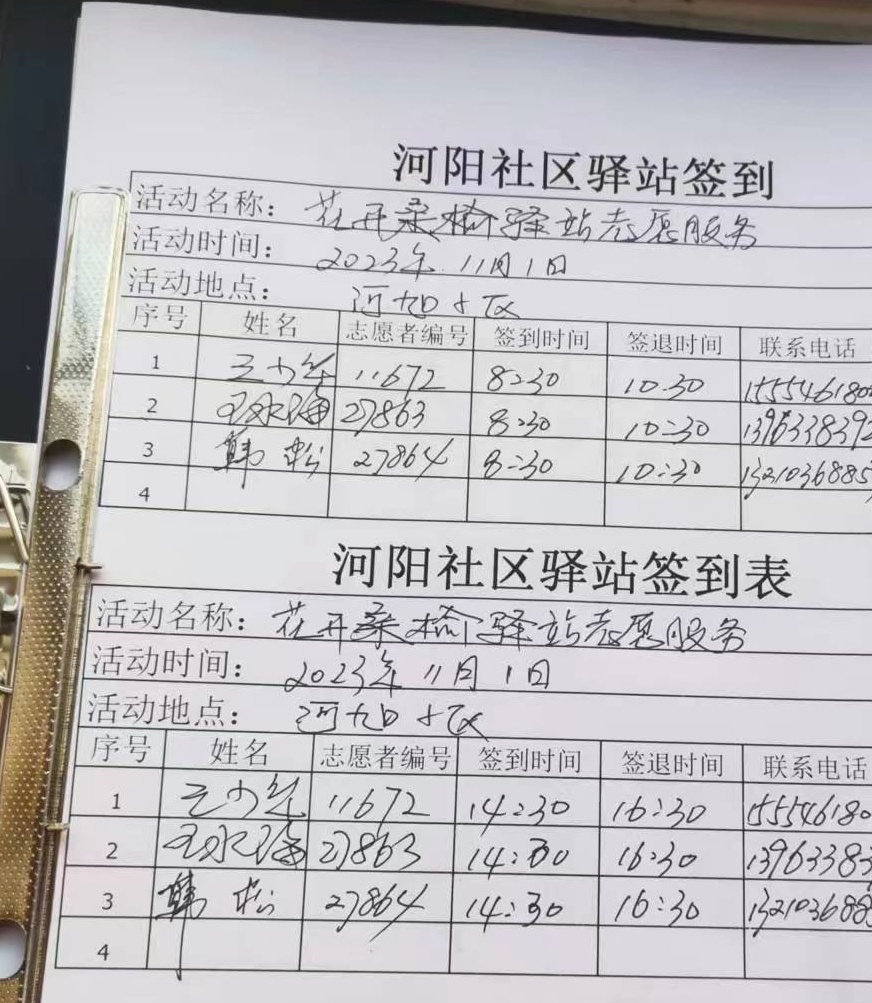 河阳社区驿站签到
活动名称： 花开桑榆驿站志愿服务
活动时间： 2023年11月1日
活动地点：
序号 姓名 志愿者编号 签到时间 签退时间 联系电话
1 11672 8:30 10:30 155546180
2 27863 8:30 10:30 1396338392
3 韩松 27864 8:30 10:30 1321036885
4
河阳社区驿站签到表
活动名称： 花开桑榆驿站志愿服务
活动时间： 2023年11月1日
活动地点：
序号 姓名 志愿者编号 签到时间 签退时间 联系电话
1 11672 14:30 16:30 155546180
2 27863 14:30 16:30 13963383
3 韩松 27864 14:30 16:30 132103688
4